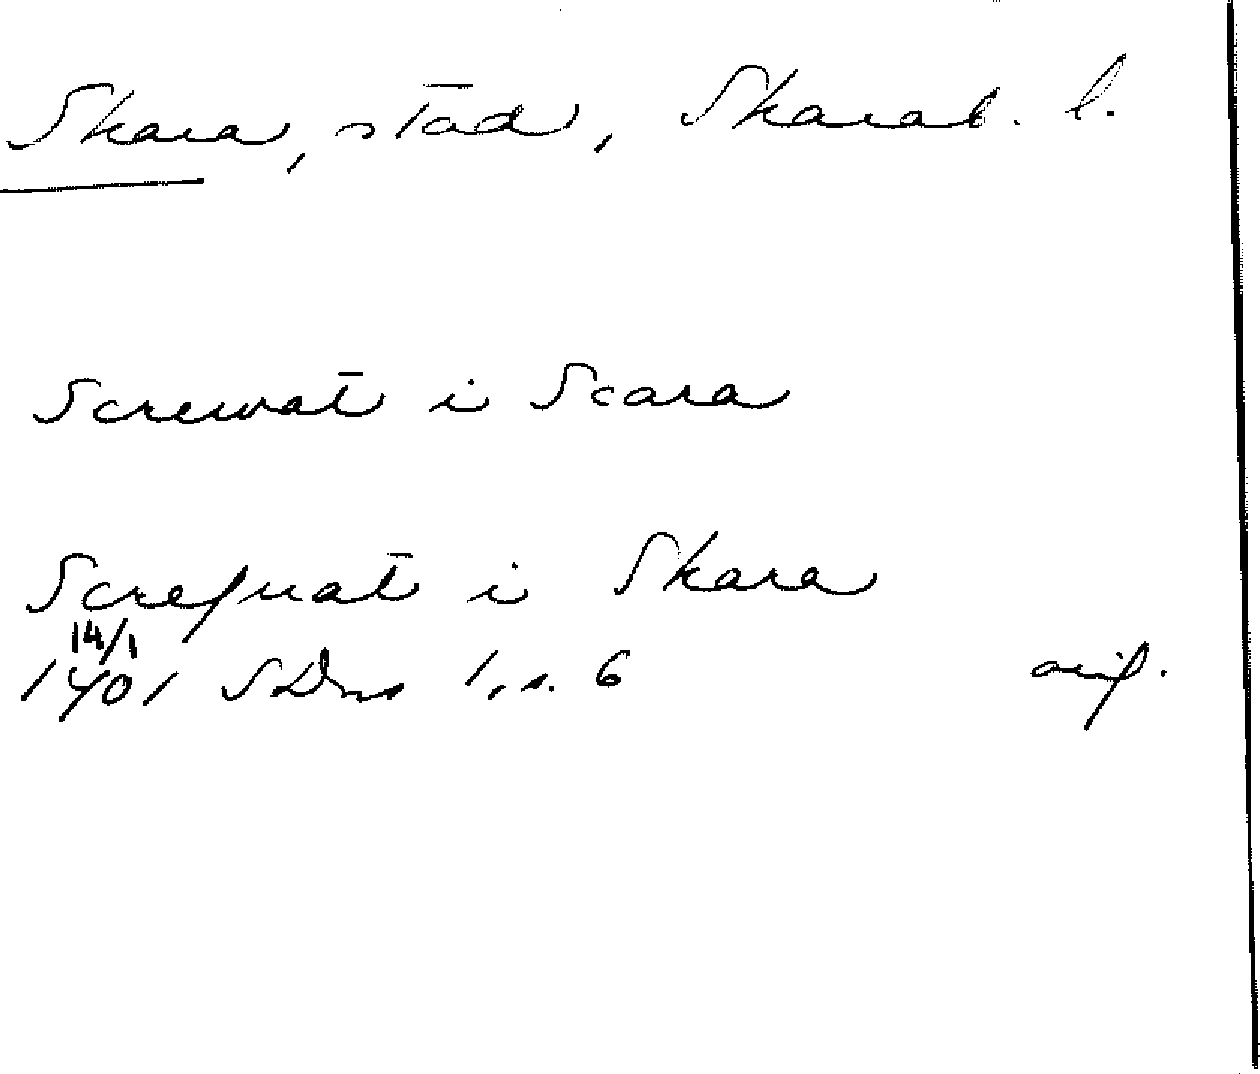 Skara, stad, Skarab. l.
Screwat i Scara
Screfuat i Skara
14/1
1401 SDns 1, s. 6 orig.